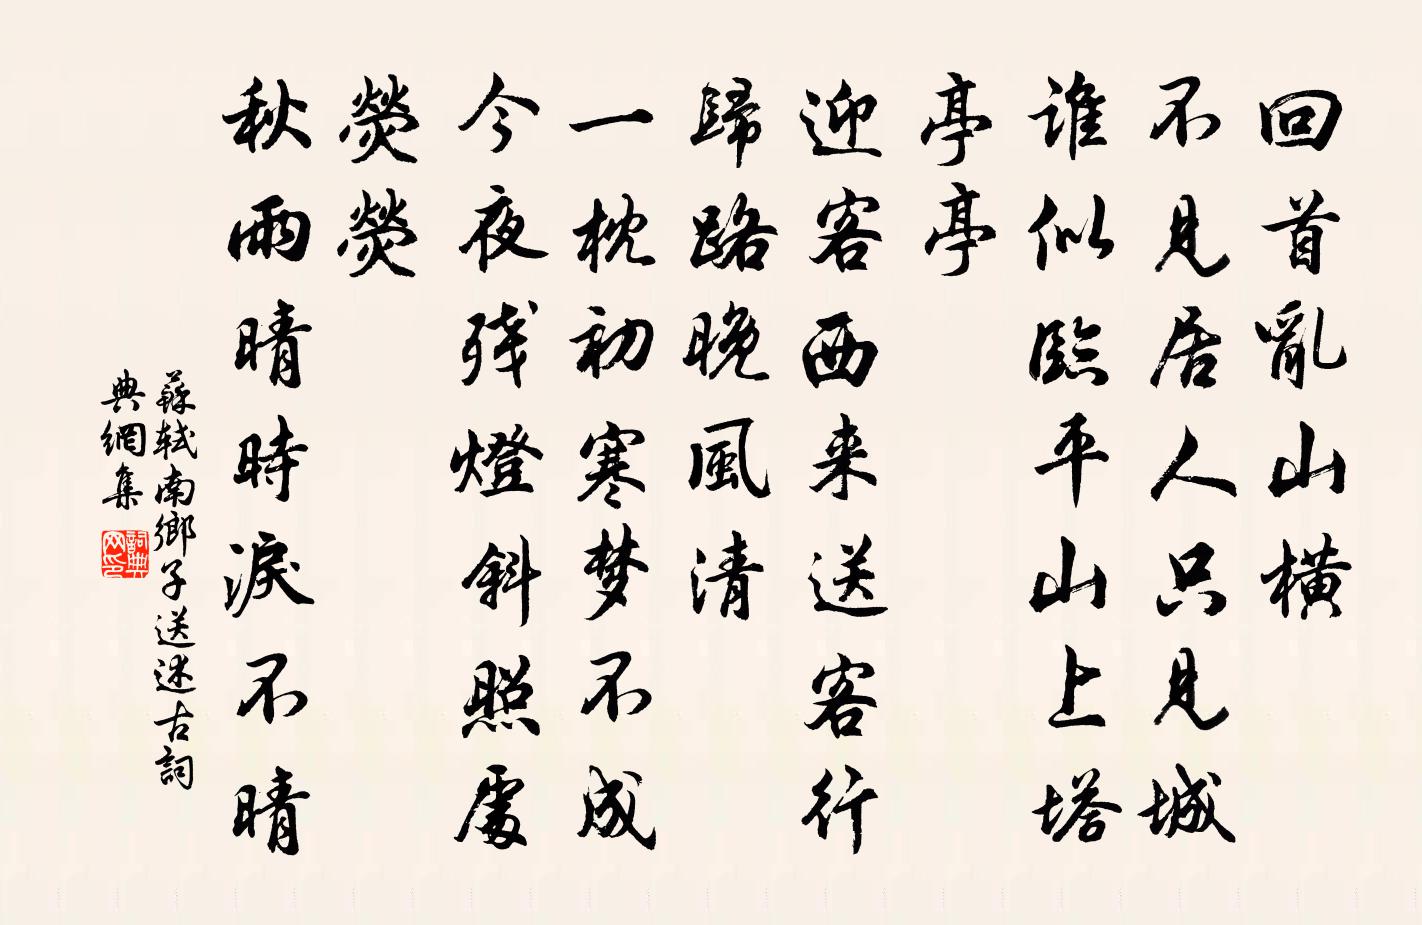 回首亂山橫
不見居人只見城
誰似臨平山上塔
亭亭
迎客西来送客行
歸路晚風清
一枕初寒梦不成
今夜残燈斜照處
熒熒
秋雨晴時淚不晴
蘇軾南鄉子送述古詞
典網集
詞典
网印